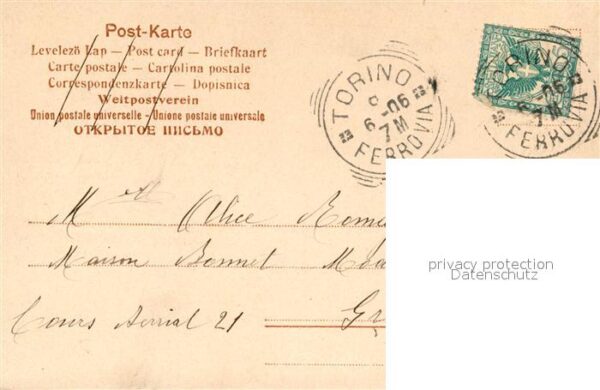 Post-Karte
Levelező Lap — Post card — Briefkaart
Carte postale — Cartolina postale
Correspondenzkarte — Dopisnica
Weltpostverein
Union postale universelle - Unione postale universale
ОТКРЫТОЕ ПИСЬМО
TORINO
6 -06
7 M
FERROVIA
TORINO
6 -06
7 M
FERROVIA
Alice
Maison Bonnet
Cours 21
privacy protection
Datenschutz